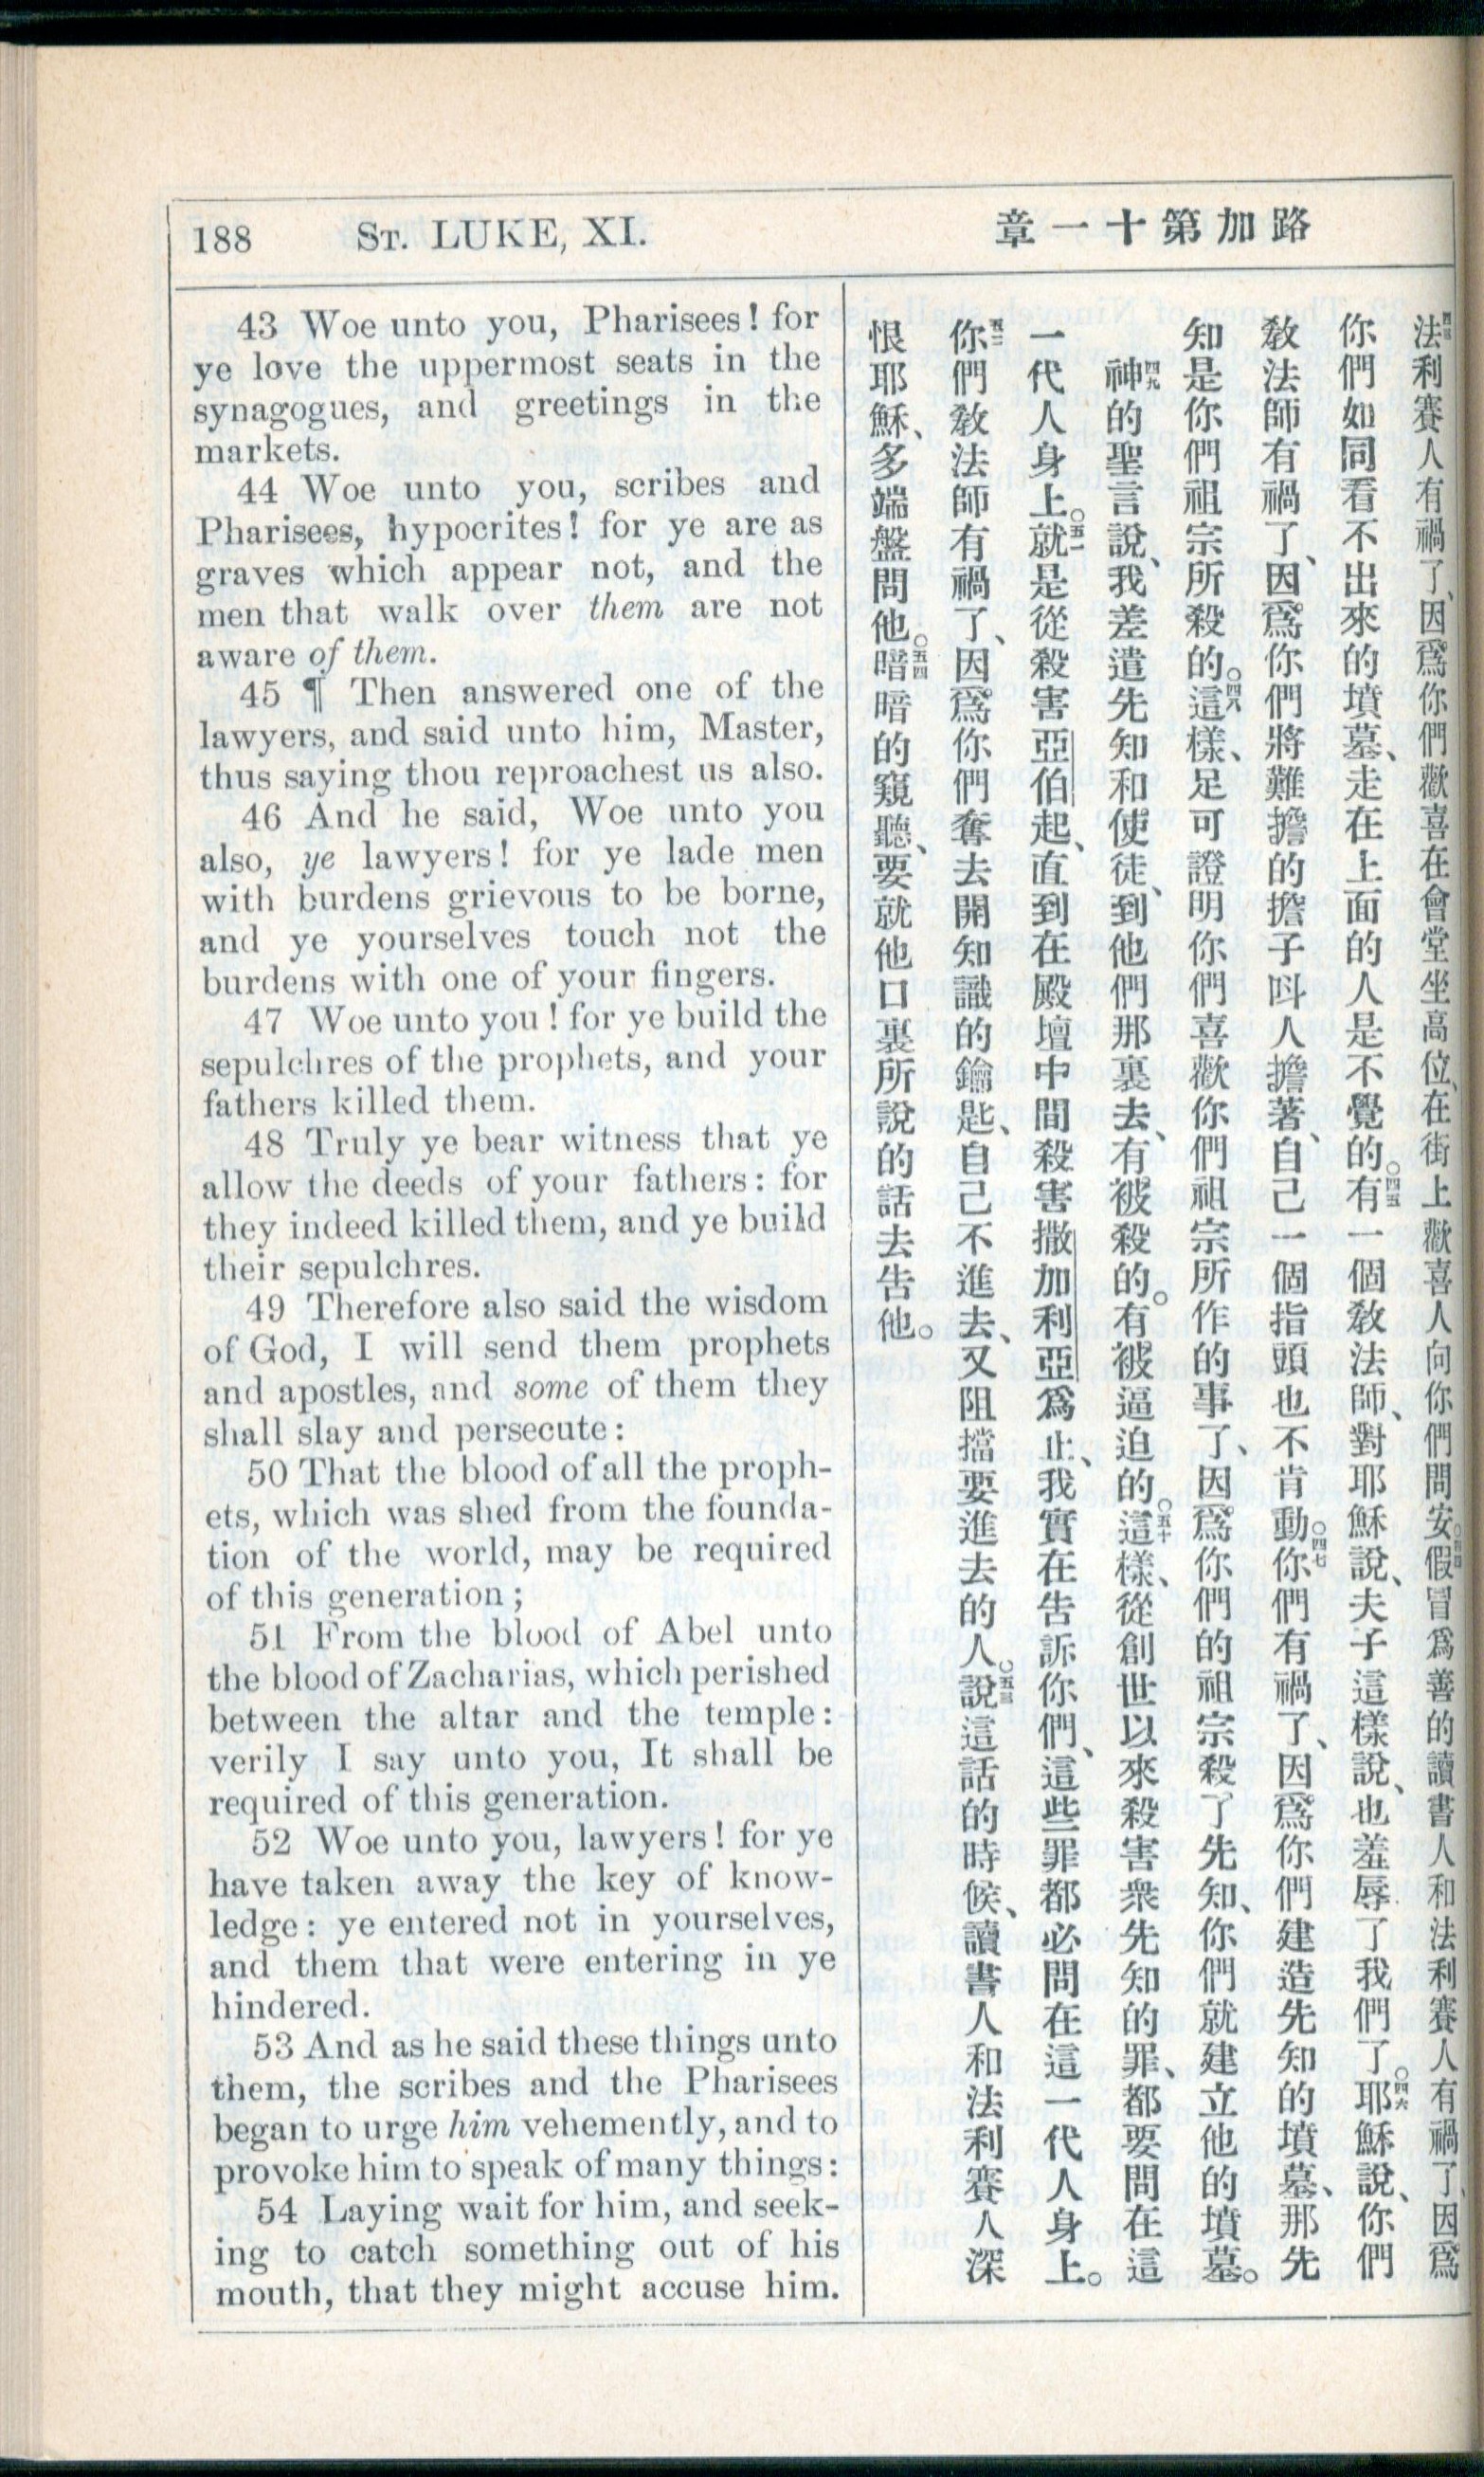 188 St. LUKE, XI.
路加第十一章
43 Woe unto you, Pharisees! for
ye love the uppermost seats in the
synagogues, and greetings in the
markets.
44 Woe unto you, scribes and
Pharisees, hypocrites! for ye are as
graves which appear not, and the
men that walk over them are not
aware of them.
45 ¶ Then answered one of the
lawyers, and said unto him, Master,
thus saying thou reproachest us also.
46 And he said, Woe unto you
also, ye lawyers! for ye lade men
with burdens grievous to be borne,
and ye yourselves touch not the
burdens with one of your fingers.
47 Woe unto you! for ye build the
sepulchres of the prophets, and your
fathers killed them.
48 Truly ye bear witness that ye
allow the deeds of your fathers: for
they indeed killed them, and ye build
their sepulchres.
49 Therefore also said the wisdom
of God, I will send them prophets
and apostles, and some of them they
shall slay and persecute:
50 That the blood of all the proph-
ets, which was shed from the founda-
tion of the world, may be required
of this generation;
51 From the blood of Abel unto
the blood of Zacharias, which perished
between the altar and the temple:
verily I say unto you, It shall be
required of this generation.
52 Woe unto you, lawyers! for ye
have taken away the key of know-
ledge: ye entered not in yourselves,
and them that were entering in ye
hindered.
53 And as he said these things unto
them, the scribes and the Pharisees
began to urge him vehemently, and to
provoke him to speak of many things:
54 Laying wait for him, and seek-
ing to catch something out of his
mouth, that they might accuse him.
四三法利賽人有禍了、因爲你們歡喜在會堂坐高位、在街上歡喜人向你們問安。○四四假冒爲善的讀書人和法利賽人有禍了、因爲
你們如同看不出來的墳墓、走在上面的人是不覺的。○四五有一個敎法師、對耶穌說、夫子這樣說、也羞辱了我們了。○四六耶穌說、你們
敎法師有禍了、因爲你們將難擔的擔子呌人擔著、自己一個指頭也不肯動。○四七你們有禍了、因爲你們建造先知的墳墓、那先
知是你們祖宗所殺的。○四八這樣、足可證明你們喜歡你們祖宗所作的事了、因爲你們的祖宗殺了先知、你們就建立他的墳墓。
四九神的聖言說、我差遣先知和使徒、到他們那裏去、有被殺的。有被逼迫的。○五十這樣、從創世以來殺害衆先知的罪、都要問在這
一代人身上。○五一就是從殺害亞伯起、直到在殿壇中間殺害撒加利亞爲止、我實在告訴你們、這些罪都必問在這一代人身上。
五二你們敎法師有禍了、因爲你們奪去開知識的鑰匙、自己不進去、又阻擋要進去的人。○五三說這話的時候、讀書人和法利賽人深
恨耶穌、多端盤問他。○五四暗暗的窺聽、要就他口裏所說的話去告他。